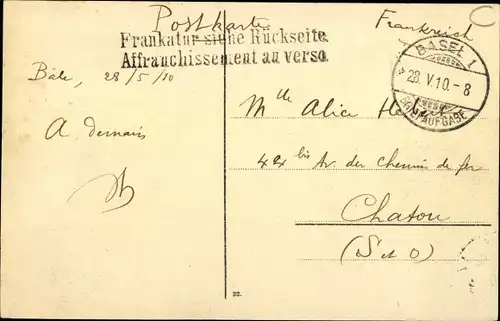 Postkarte
Frankreich
Frankatur siehe Rückseite.
Affranchissement au verso.
BASEL 1
28.V.10.-8
BRIEFAUFGABE
Bâle, 28/5/10
A demain
Mlle Alice
bis Av. du Chemin de fer
Chatou
(S et O)
32.
C